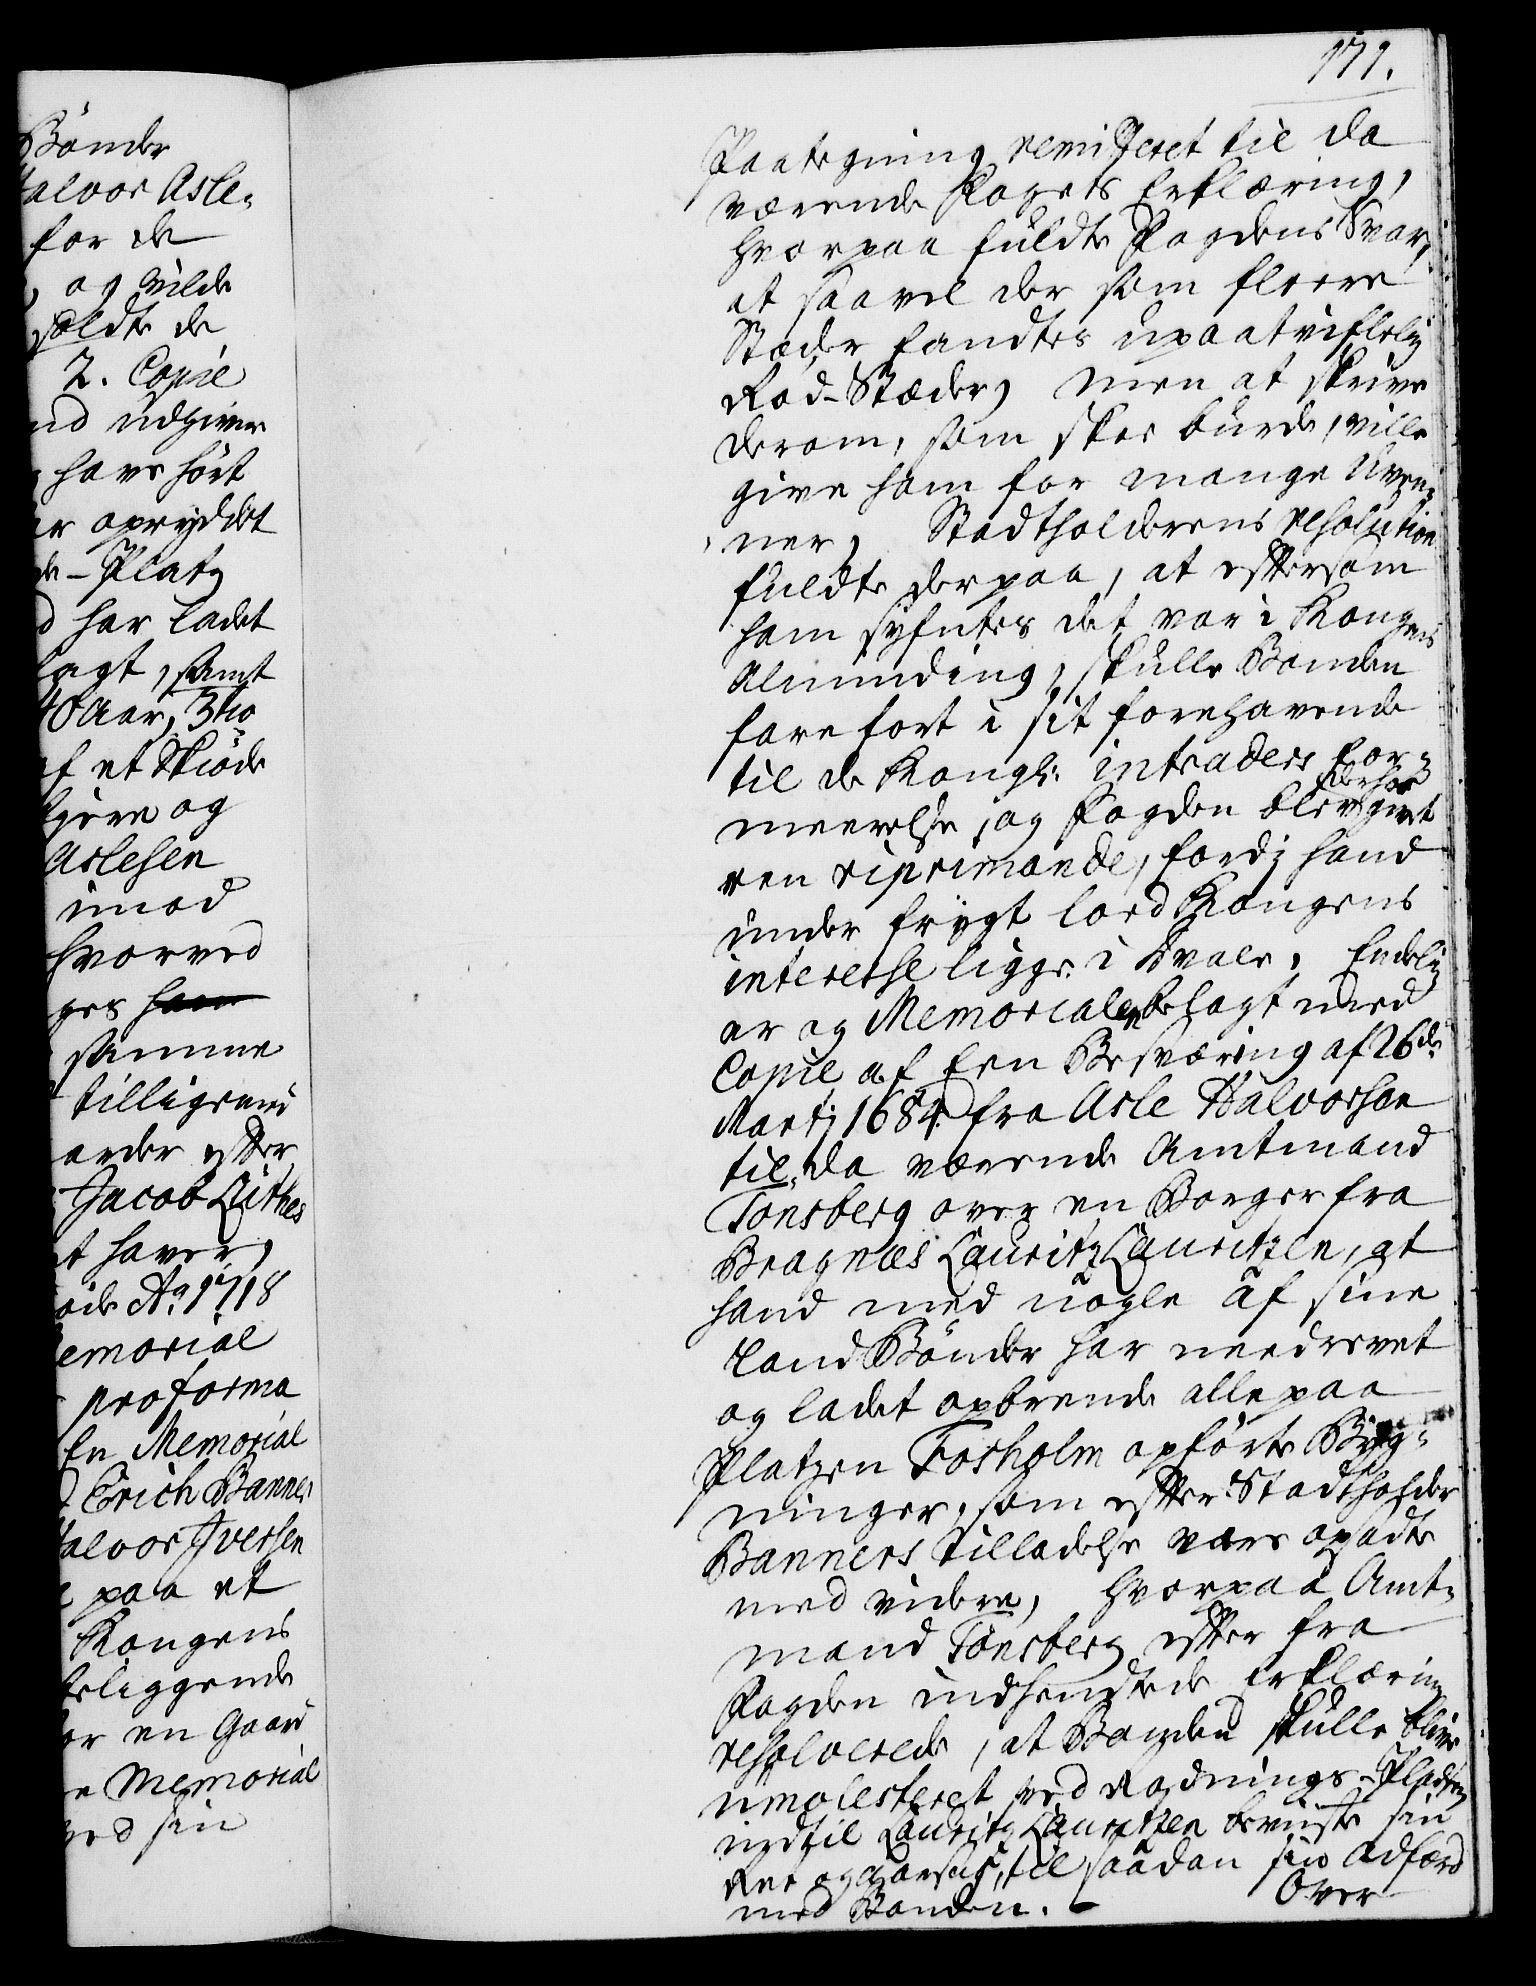 Bønder
alvor Asle-
for de
og vilde
sældte de
2. Copie
nd udgiver
have hört
er opryddet
de-Platz
d har ladet
lagt, samt
40 Aar, 3tio
af et Skiöde
giere og
Aslesen
imod
hvorved
ges haver
samme
tilligemed
arder efter
Jacob Lüthes
t haver,
öde Ao 1718
emorial
proforma
En Memorial
Erich Banner
alvor Iversen
paa et
Kongens
beliggende
or en Gaard
e Memorial
ved sin
171.
Paategning remitteret til da
værende Fogets Erklæring,
hvorpaa fuldte Fogdens Svar,
at saavel der som fleere
Stæder fandtes upaatvifletlig
Rød-Stæder, men at skrive
derom, som skee burde, ville
give ham for mange Uven-
ner, Stadtholderens resolution
fuldte derpaa, at eftersom
ham syntes det var i Kongens
Alminding, skulle Bonden
fare fort i sit forehavende
til de Kongl: intraders For-
meerelse, og Fogden blev derhos givet
een riprimande, fordj hand
under frygt loed Kongens
interesse ligge i Dvale, Endelig
er og Memorialen belagt med
Copie af Een Besværing af 26de
Martj 1684 fra Asle Halvorsen
til da værende Amtmand
Tonsberg over en Borger fra
Bragnæs Lauritz Lauritzen, at
hand med nogle af sine
Land Bönder har needrevet
og ladet opbrende alle paa
Platzen Fosholm opförte Byg-
ninger, som efter Stadtholder
Banners Tilladelse vare opsadte
med videre, hvorpaa Amt-
mand Tonsberg efter fra
Fogden indhendtede Erklæring
resolverede, at Bonden skulle blive
umolesteret ved Rødnings-Pladsen
indtil Lauritz Lauritzen beviiste sin
Ret og Aarsag, til saadan sin Adfærd
med Bonden.
Over